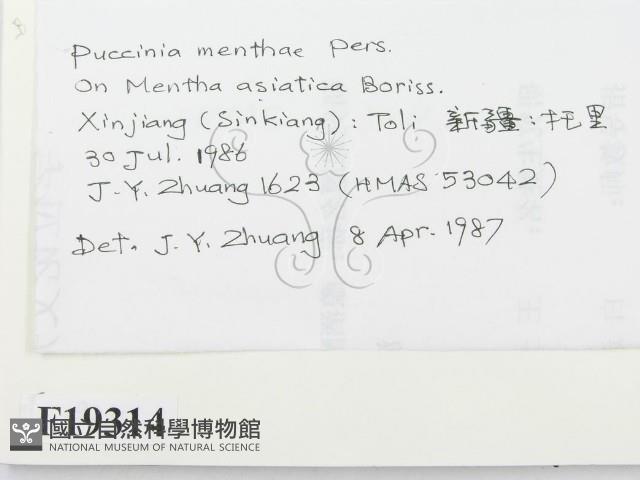 Puccinia menthae Pers.
On Mentha asiatica Boriss.
Xinjiang (Sinkiang): Toli 新疆:托里
30 Jul. 1986
J.Y. Zhuang 1623 (HMAS 53042)
Det. J.Y. Zhuang 8 Apr. 1987
F19314
國立自然科學博物館
NATIONAL MUSEUM OF NATURAL SCIENCE